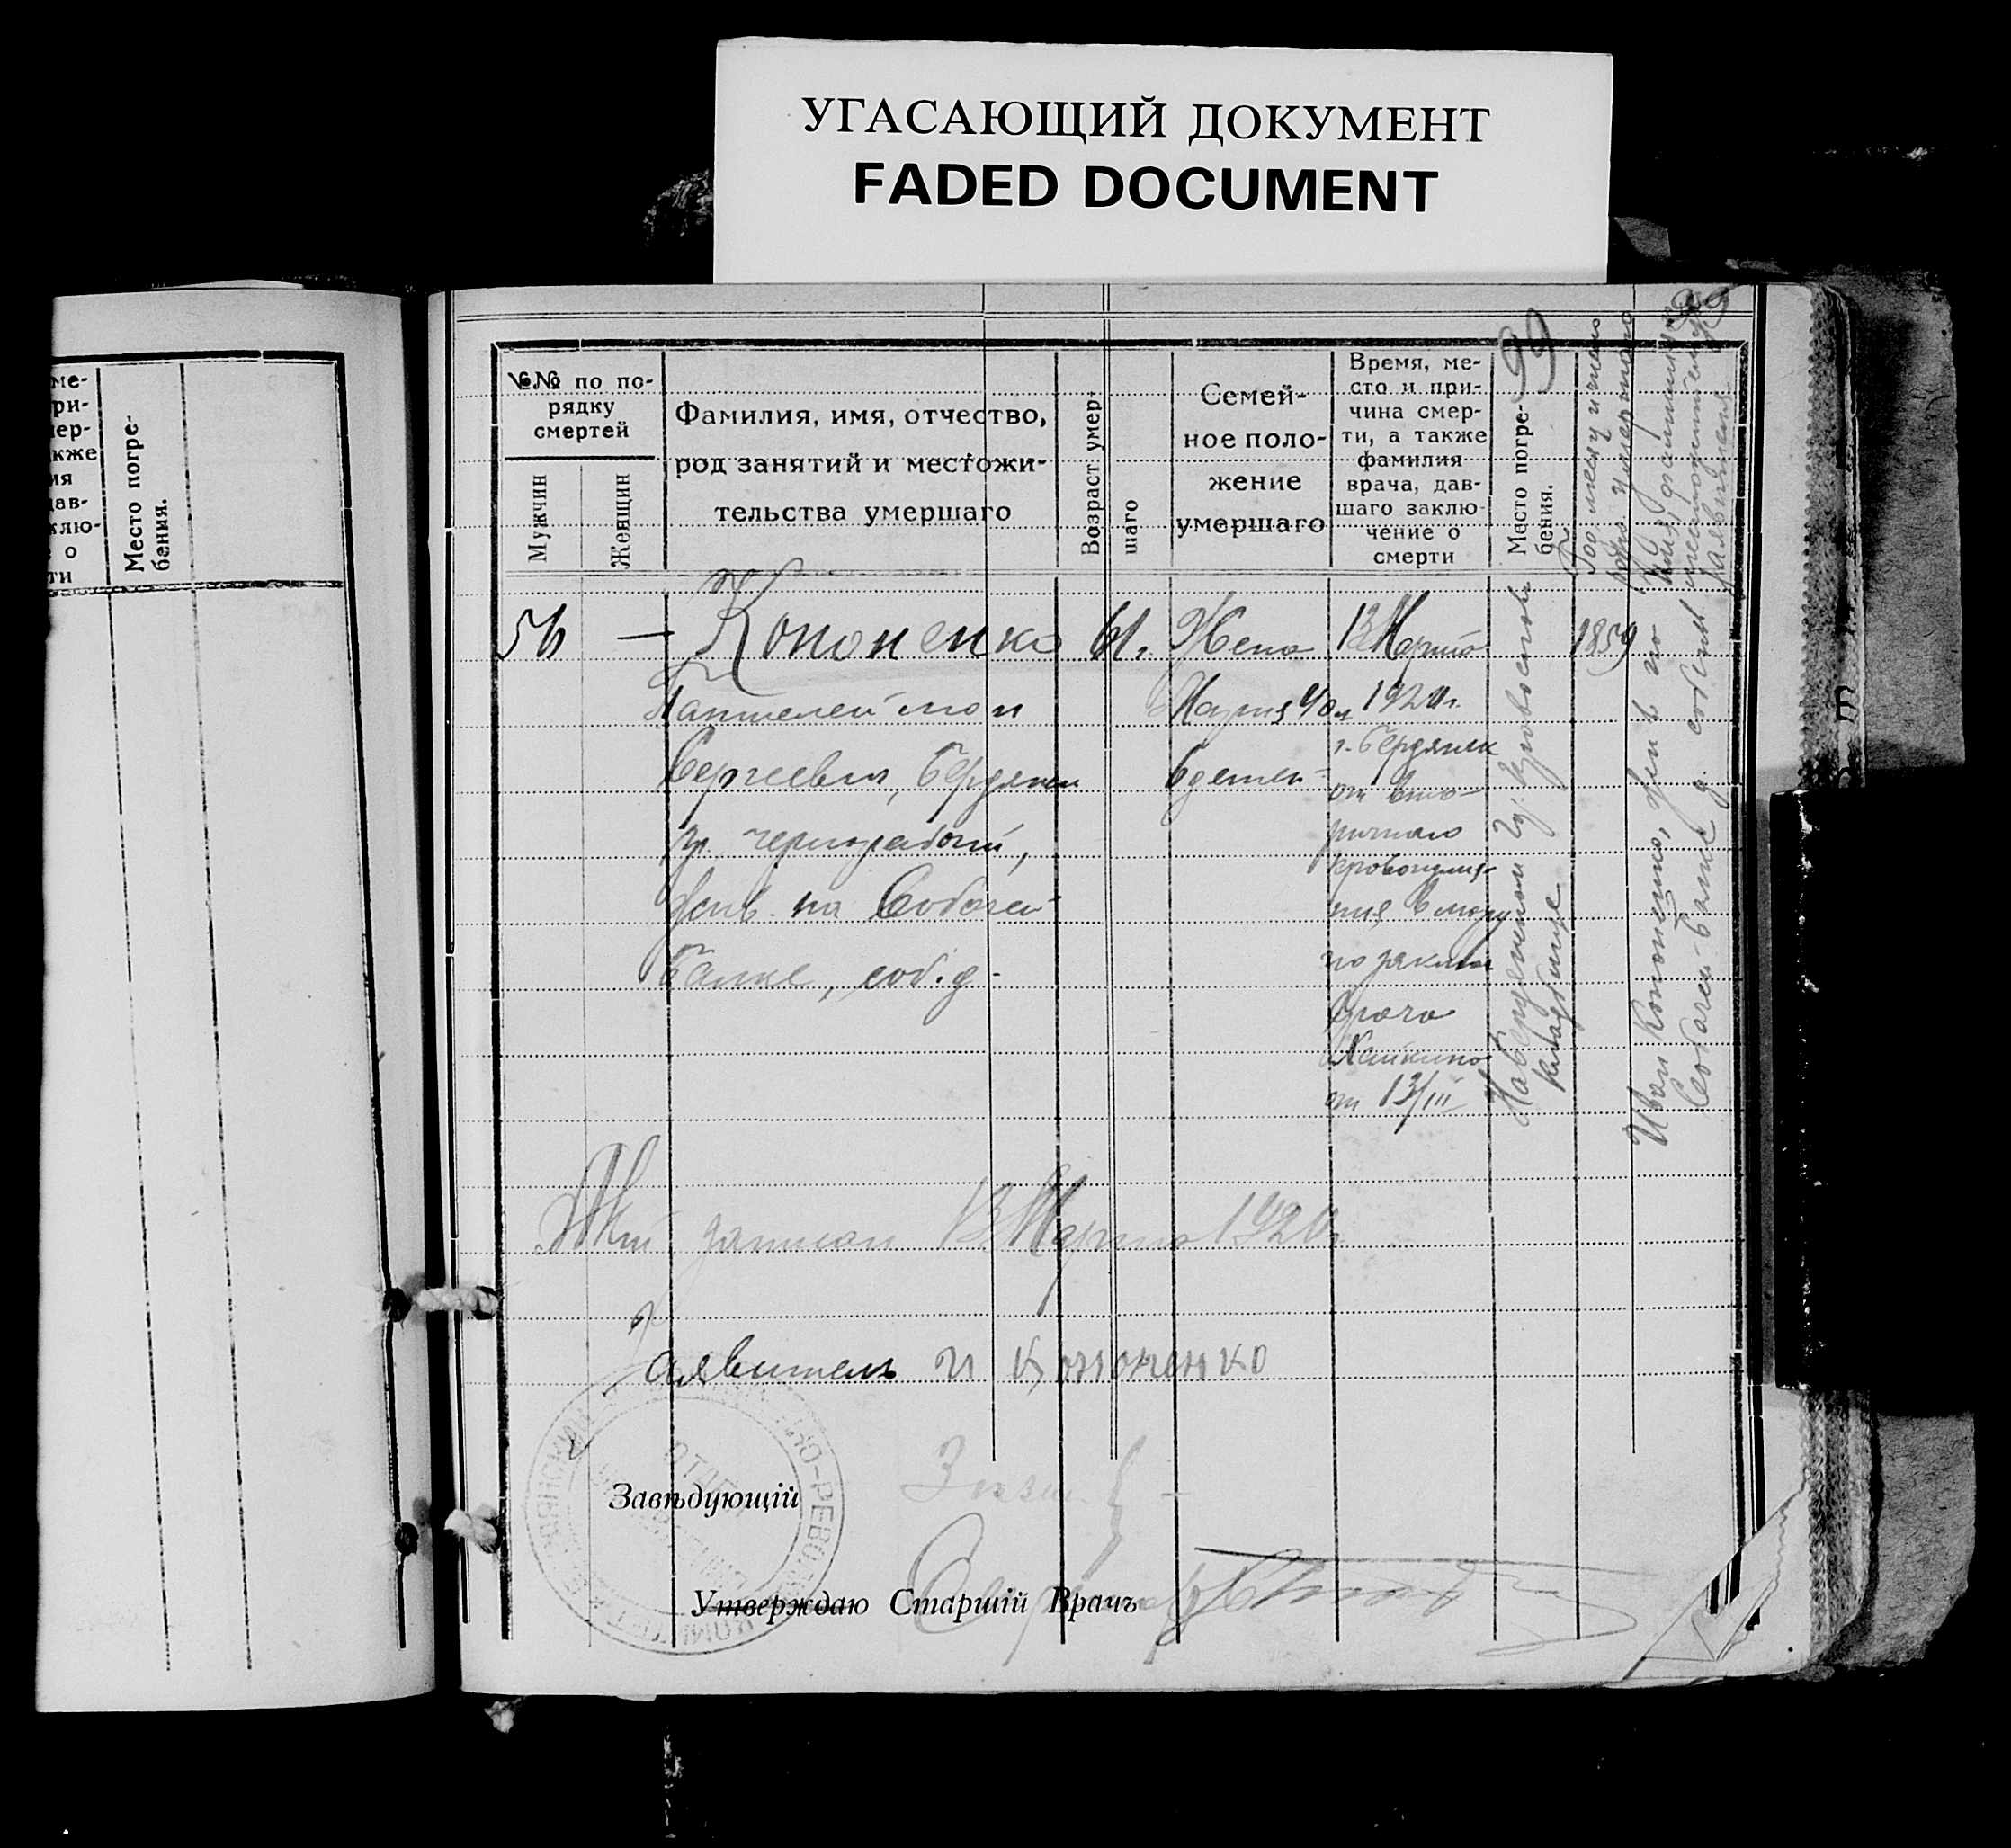 УГАСАЮЩИЙ ДОКУМЕНТ
FADED DOCUMENT
ме-
ри-
ер-
кже
ия
дав-
клю-
о
ти
Место погре-
бания.
99
№№ по по-
рядку
смертей
Мужчин
Женщин
Фамилия, имя, отчество,
род занятий и местожи-
тельства умершаго
Возраст умер-
шаго
Семей-
ное поло-
жение
умершаго
Время, ме-
сто и при-
чина смер-
ти, а также
фамилия
врача, дав-
шаго заклю-
чение о
смерти
Место погре-
бения.
Год месяц и число
рожд. умершаго
Имя, фамилия и
местожительство
заявителя
56 — Кононенко
Пантелеймон
Сергеевич, Бердянск
гр. чернорабочий,
жив. на Собачей
балке, соб. д.
61.
Жена
Мария 40 л
6 детей
13 Марта
1920 г.
г. Бердянск
от вто-
ричнаго
кровоизлия-
ния в мозгу
по заключ
врача
Хайкина
от 13/III
На Бердянском
кладбище
1859
Иван Кононенко, жив. на
Собачей балке с. соб. д.
Акт записан 13 Марта 1920 г.
Заявитель И Кононенко
Завѣдующій
Утверждаю Старшій Врачъ